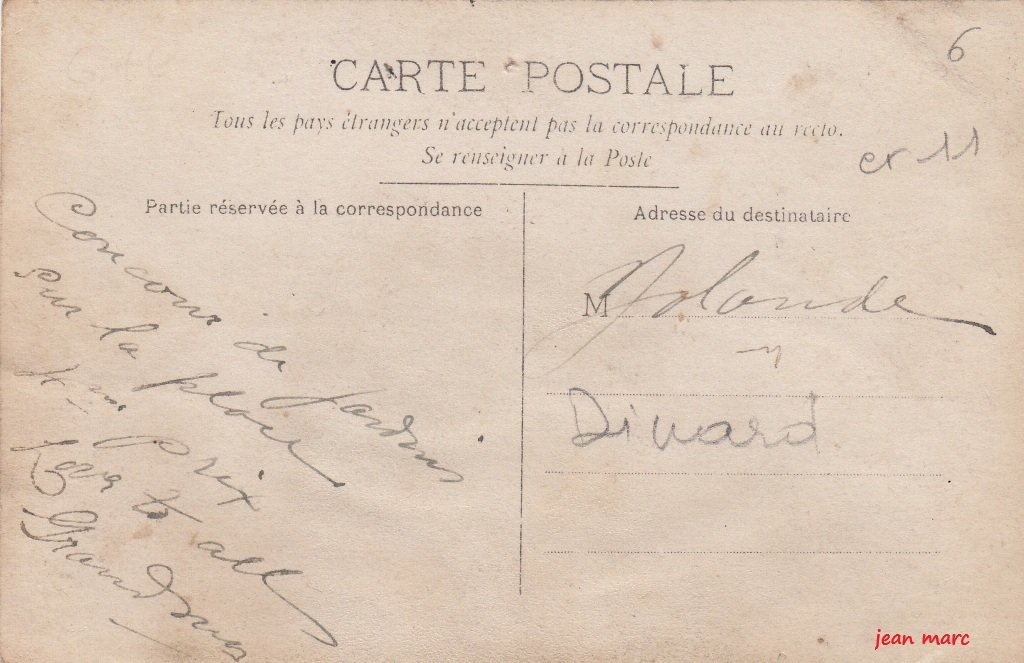 6
CARTE POSTALE
Tous les pays étrangers n'acceptent pas la correspondance au recto.
Se renseigner à la Poste
ex 11
Partie réservée à la correspondance
Concours de Jardins
sur la place
4me prix
Love to all
Adresse du destinataire
M Yolande
Dinard
jean marc